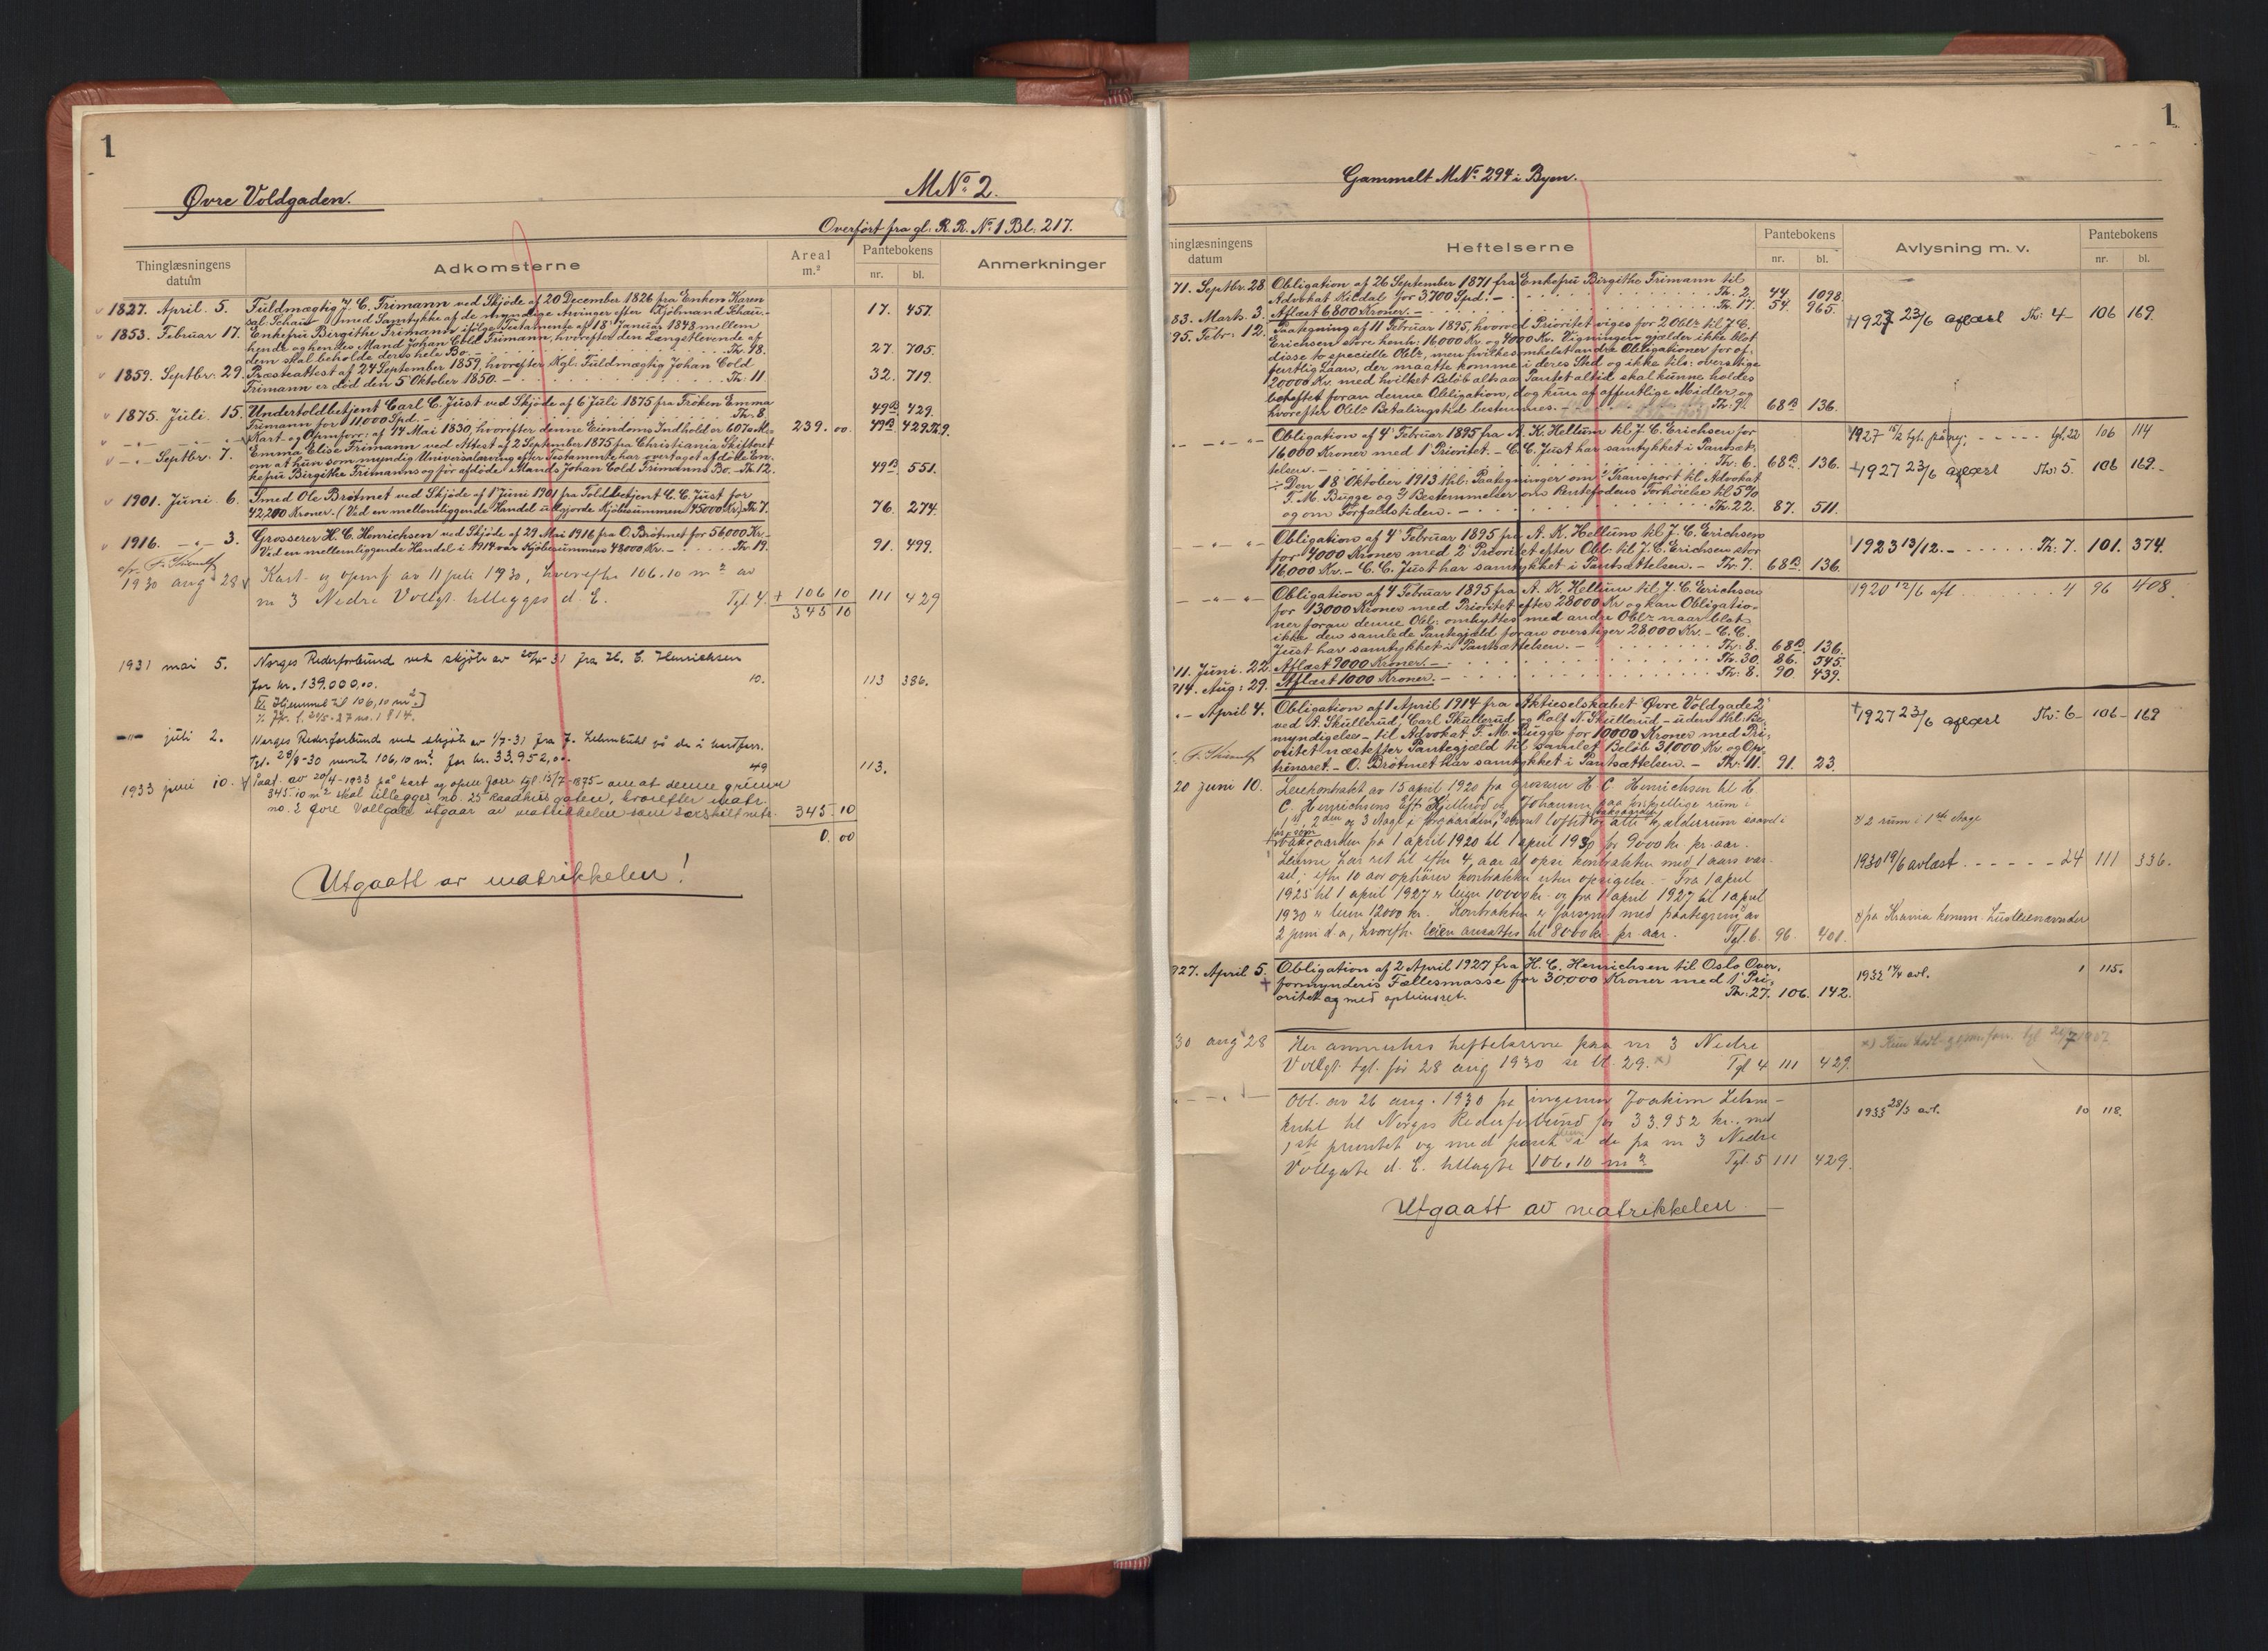 1
Øvre Voldgaden.
M№ 2.
Overført fra gl: R. R. № 1 Bl: 217.
Thinglæsningens datum
Adkomsterne
Areal m.²
Pantebokens
nr. bl.
Anmerkninger
1827. April. 5. Fuldmægtig J. C. Frimann ved Skjøde af 20 December 1826 fra Enken Karen
sal. Schaus med Samtykke af de myndige Arvinger efter Kjøbmand Schau- 17. 457.
1853. Februar 17. Enkefru Birgithe Frimann ifølge Testamente af 18 Januar 1848 mellem
hende og hendes Mand Johan Cold Frimann, hvorefter den Længstlevende af
dem skal beholde deres hele Bo. Th. 48. 27. 705.
1859. Septbr. 29. Præsteattest af 24 September 1859, hvorefter Kgl. Fuldmægtig Johan Cold
Frimann er død den 5 Oktober 1850. Th: 11 32. 719.
1875. Juli. 15. Undertoldbetjent Carl C. Just ved Skjøde af 6 Juli 1875 fra Frøken Emma
Frimann for 11,000 Spd. Th: 8. 49B 429.
Kart- og Opmforr: af 14 Mai 1830, hvorefter denne Eiendoms Indhold er 607 239. 00 49B 429. Th 9.
Septbr. 7. Emma Elise Frimann ved Attest af 2 September 1875 fra Christiania Skifteret
om at hun som myndig Universalarving efter Testamente har overtaget afdøde En-
kefru Birgithe Frimanns og før afdøde Mands Johan Cold Frimanns Bo. Th 12. 49B 551.
1901. Juni 6. Smed Ole Brøtmet ved Skjøde af 1 Juni 1901 fra Toldbetjent C. C. Just for
42,200 Kroner. (Ved en mellemliggende Handel udgjorde Kjøbesummen 45000 Kr.) Th 7. 76. 274.
1916. 3. Grosserer H. C. Henrichsen ved Skjøde af 29 Mai 1916 fra O. Brøtmet for 56,000 Kr.
Ved en mellemliggende Handel i 1914 var Kjøbesummen 48000 Kr. Th. 19. 91. 499.
1930 aug 28 Kart- og opmf av 11 juli 1930, hvorefter 106.10 m² av
nr 3 Nedre Vollgt. tillegges d. E. Tgl 4. + 106 10 111 429
345 10
1931 mai 5. Norges Rederforbund ved skjøte av 20/4-31 fra H. C. Henrichsen
for kr. 139.000,00. 10. 113 386.
[Hjemmel til 106,10 m²]
juli 2. Norges Rederforbund ved skjøte av 1/7-31 fra J. Lehmkuhl på de i kartforr.
Tgl. 28/8-30 nevnte 106,10 m² for kr. 33.952,00. 49 113.
1933 juni 10. Påt. av 20/4-1933 på kart og opm forr tgl. 15/7-1875 om at denne grunn
345.10 m² skal tillegges no. 25 Raadhusgaten, hvorefter matr.
no. 2 Øvre Vollgate utgaar av matrikkelen som særskilt matr. 345 10
0. 00
Utgaatt av matrikkelen!
1
Gammelt M№ 294 i Byen.
Thinglæsningens datum
Heftelserne
Pantebokens
nr. bl.
Avlysning m. v.
Pantebokens
nr. bl.
71. Septbr. 28 Obligation af 26 September 1871 fra Enkefru Birgithe Frimann til
Advokat Keedal for 3700 Spd. Th. 2. 44 1098.
83. Marts. 3. Aflæst 6800 Kroner. Th. 17. 54. 965.
1927 23/6 aflæst Th: 4 106 169.
95. Febr. 12. Paategning af 11 Februar 1895, hvorved Prioritet viges for 2 Obl: til J. C.
Erichsen store henh: 16000 Kr. og 4000 Kr. Vigningen gjælder ikke blot
disse to specielle Obl:, men hvilkesomhelst andre Obligationer for of-
fentlig Laan, der maatte komme i deres Sted og ikke til: overstige
20000 Kr. med hvilket Beløb altsaa Pantet altid skal kunne holdes
beheftet foran denne Obligation, dog kun af offentlige Midler og
hvorefter Obl: Betalingstid bestemmes. Th: 9. 68B 136.
Obligation af 4 Februar 1895 fra A. K. Hellum til J. C. Erichsen for
16,000 Kroner med 1 Prioritet. C. C. Just har samtykket i Pantsæt-
telsen. Th: 6. 68B 136.
1927 15/2 tgl. påteg; tgl 22 106 114
1927 23/6 aflæst Th: 5. 106 169.
Den 18 Oktober 1913 thl: Paategninger om 1 Transport til Advokat
F. M. Bugge og 2 Bestemmelser om Rentefodens Forhøielse til 5%
og om Forfaldstiden. Th. 22. 87. 511.
Obligation af 4 Februar 1895 fra A. K. Hellum til J. C. Erichsen
for 4000 Kroner med 2 Prioritet efter Obl: til J. C. Erichsen stor
16,000 Kr. C. C. Just har samtykket i Pantsættelsen. Th. 7. 68B 136.
1923 13/12. Th: 7. 101. 374.
Obligation af 4 Februar 1895 fra A. K. Hellum til J. C. Erichsen
for 13000 Kroner med Prioritet efter 28000 Kr og kan Obligatio-
ner foran denne Obl: ombyttes med andre Obl: naar blot
ikke den samlede Pantegjæld foran overstiger 28000 Kr. C. C.
Just har samtykket i Pantsættelsen. Th: 8. 68B 136.
1920 12/6 afl 4 96 408.
11. Juni. 22. Aflæst 9000 Kroner. Th. 30. 86. 545.
914. Aug: 29. Aflæst 1000 Kroner. Th: 8. 90. 439.
April 4. Obligation af 1 April 1914 fra Aktieselskabet Øvre Voldgade 2
ved A. Skullerud, Carl Skullerud og Rolf N. Skullerud - uden thl: Be-
myndigelse - til Advokat F. M. Bugge for 10000 Kroner med Pri-
oritet næstefter Pantegjæld til samlet Beløb 31000 Kr. og Op-
trinsret. O. Brøtmet har samtykket i Pantsættelsen. Th: 11. 91. 23.
1927 23/6 aflæst Th: 6 106 169
20 juni 10. Leiekontrakt av 15 april 1920 fra grosserer H. C. Henrichsen til H.
C. Henrichsens Eft Hjellerud og Johansen paa forskjellige rum i
1st, 2den og 3 Etage i forgaarden, samt loftet og alle kjælderrum saavel i
for- som bakgaarden fra 1 april 1920 til 1 april 1930 for 9000 kr pr. aar.
Leierne har ret til efter 4 aar at opsi kontrakten med 1 aars var-
sel; efter 10 aar ophører kontrakten uten opsigelse. Fra 1 april
1925 til 1 april 1927 er leien 10000 kr. og fra 1 april 1927 til 1 april
1930 er leien 12000 kr. Kontrakten er forsynet med paategning av
2 juni d. a, hvorefter leien ansættes til 8000 kr. pr. aar. Tgl. 6. 96. 401.
2 rum i 1ste Etage
1930 19/6 avlæst 24 111 336.
fra Krania komm. husleienævnder
927. April 5. Obligation af 2 April 1927 fra H. C. Henrichsen til Oslo Over-
formynderis Fællesmasse for 30,000 Kroner med 1 Pri-
oritet og med optrinsret. Th: 27. 106. 142.
1932 14/4 avl. 1 115.
30 aug 28 Her anmerkes heftelserne paa nr 3 Nedre
Vollgt. tgl. før 28 aug 1930 se bl. 29. Tgl 4 111 429.
Obl. av 26 aug. 1930 fra ingeniør Joakim Lehm-
kuhl til Norges Rederforbund for 33.952 kr., med
1ste prioritet og med pant i de fra nr 3 Nedre
Vollgate d. E. tillagte 106.10 m² Tgl. 5 111 429.
1933 28/3 avl. 10 118.
Utgaatt av matrikkelen.